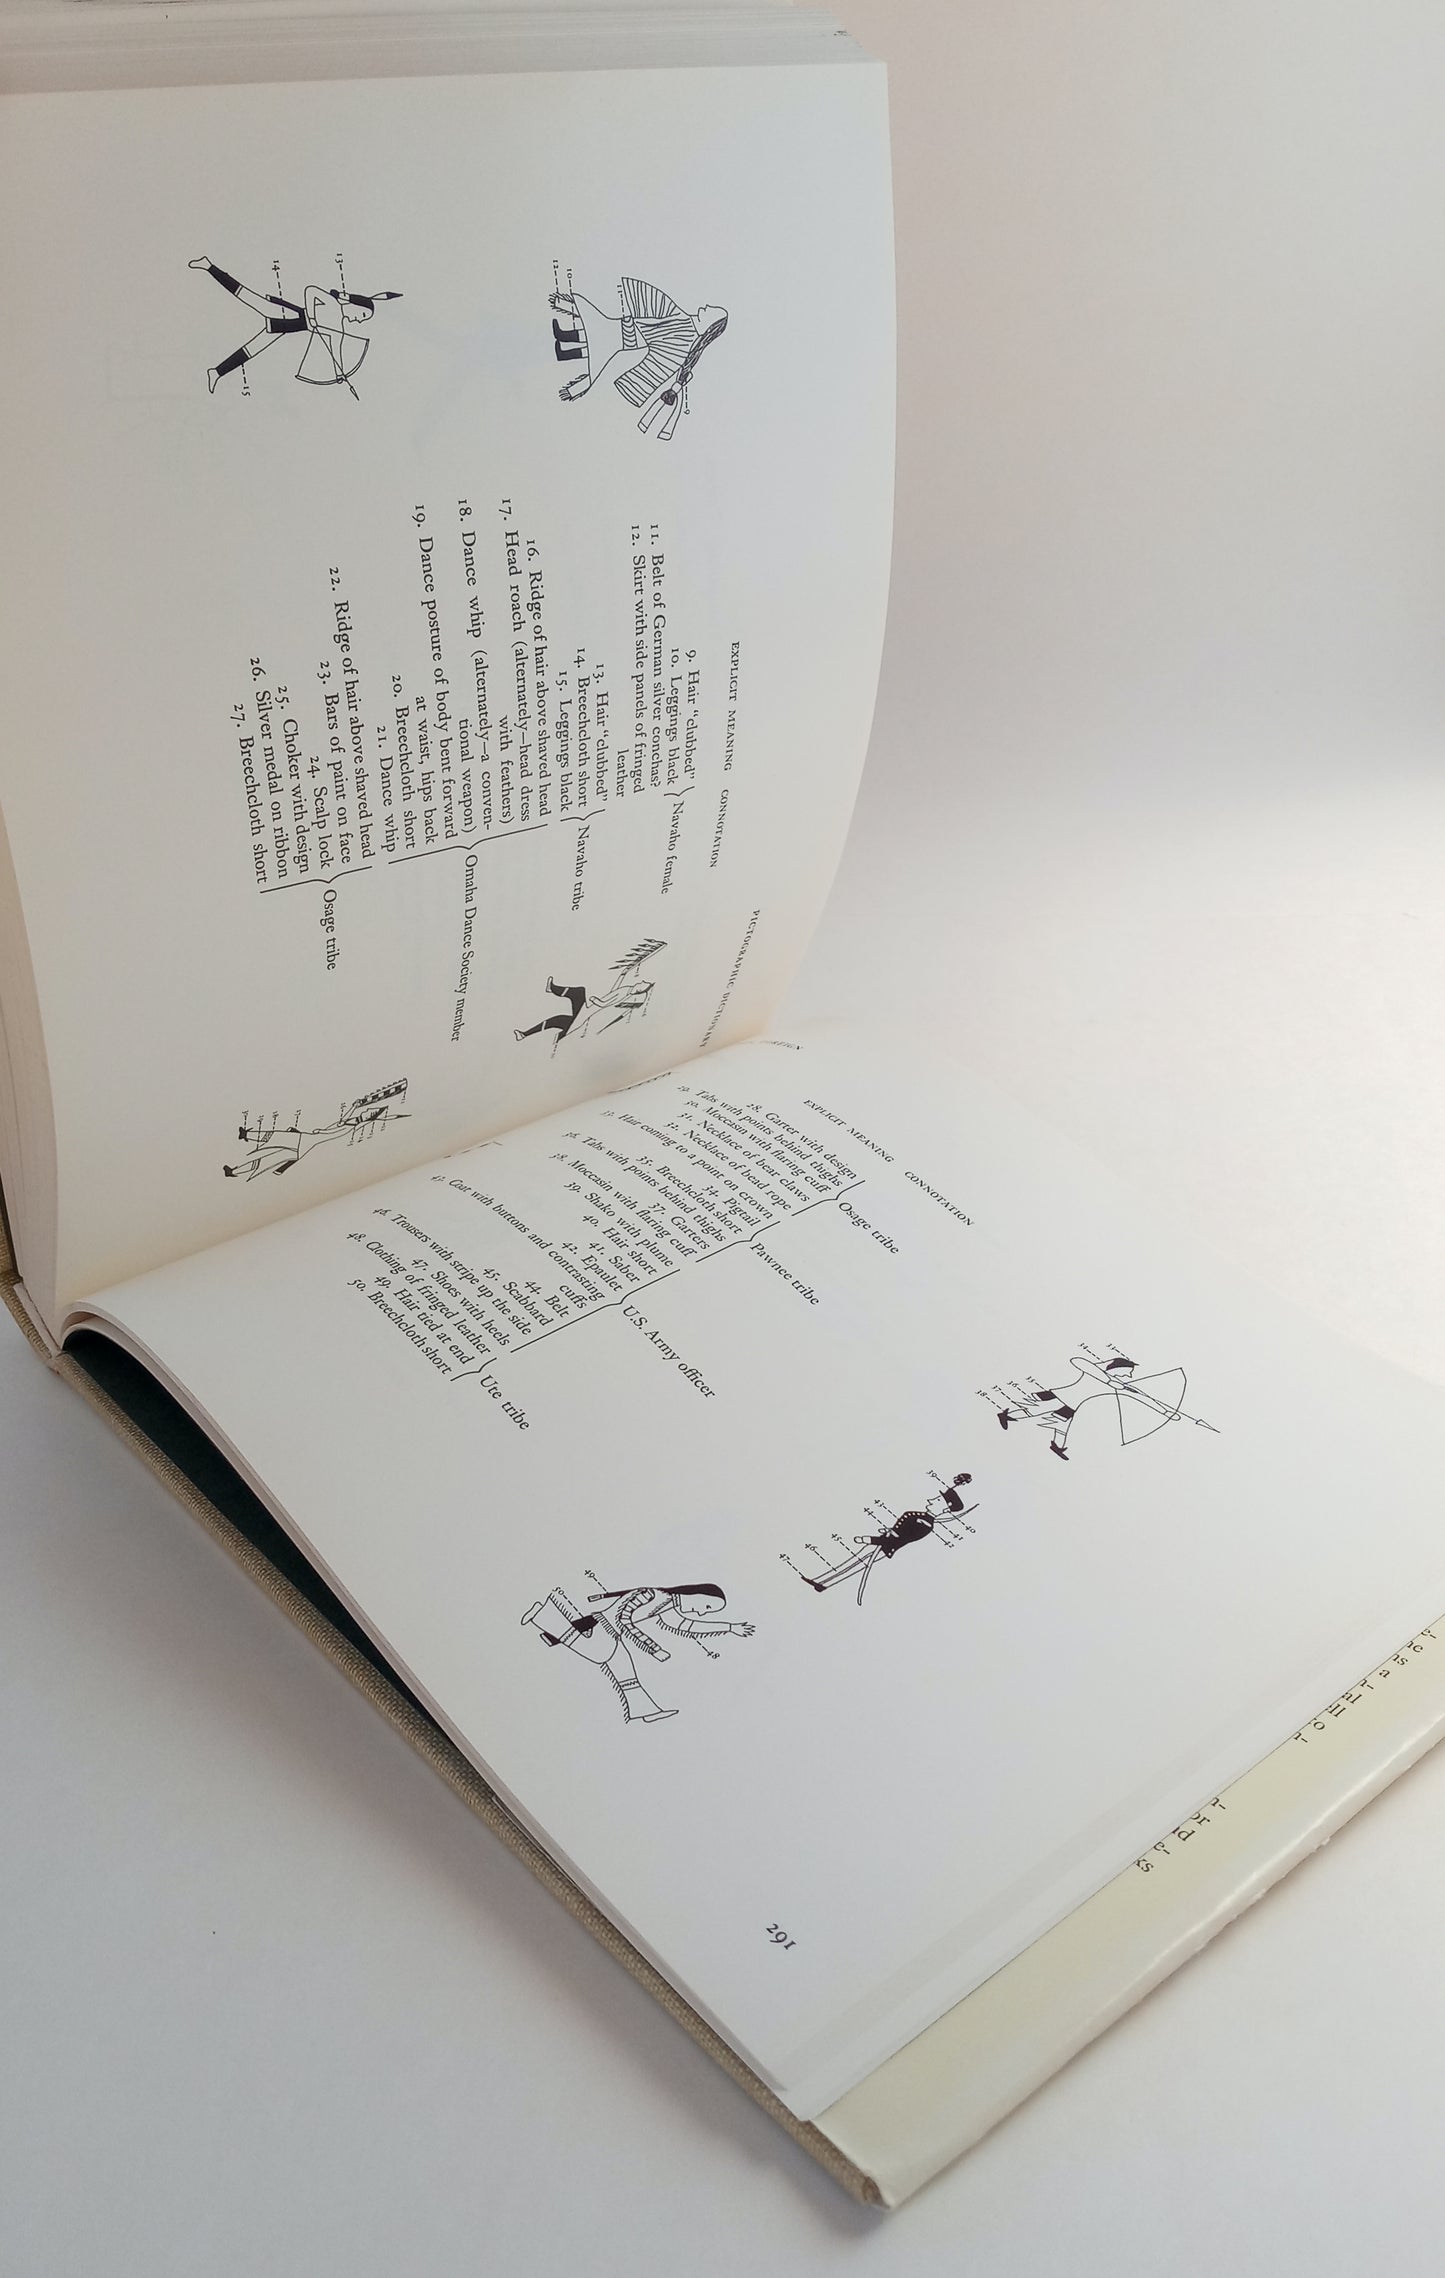 PICTOGRAPHIC DICTIONARY
EXPLICIT MEANING CONNOTATION
9. Hair “clubbed”
10. Leggings black
11. Belt of German silver conchas?
12. Skirt with side panels of fringed
leather
Navaho female
13. Hair “clubbed”
14. Breechcloth short
15. Leggings black
Navaho tribe
16. Ridge of hair above shaved head
17. Head roach (alternately—head dress
with feathers)
18. Dance whip (alternately—a conven-
tional weapon)
19. Dance posture of body bent forward
at waist, hips back
20. Breechcloth short
21. Dance whip
Omaha Dance Society member
22. Ridge of hair above shaved head
23. Bars of paint on face
24. Scalp lock
25. Choker with design
26. Silver medal on ribbon
27. Breechcloth short
Osage tribe
9
10
11
12
13
14
15
EXPLICIT MEANING CONNOTATION
28. Garter with design
29. Tabs with points behind thighs
30. Moccasin with flaring cuff
31. Necklace of bear claws
32. Necklace of bead rope
Osage tribe
33. Hair coming to a point on crown
34. Pigtail
35. Breechcloth short
36. Tabs with points behind thighs
37. Garters
38. Moccasin with flaring cuff
Pawnee tribe
39. Shako with plume
40. Hair short
41. Saber
42. Epaulet
43. Coat with buttons and contrasting
cuffs
44. Belt
45. Scabbard
46. Trousers with stripe up the side
47. Shoes with heels
U.S. Army officer
48. Clothing of fringed leather
49. Hair tied at end
50. Breechcloth short
Ute tribe
33
34
35
36
37
38
39
40
41
42
43
44
45
46
47
48
49
50
291